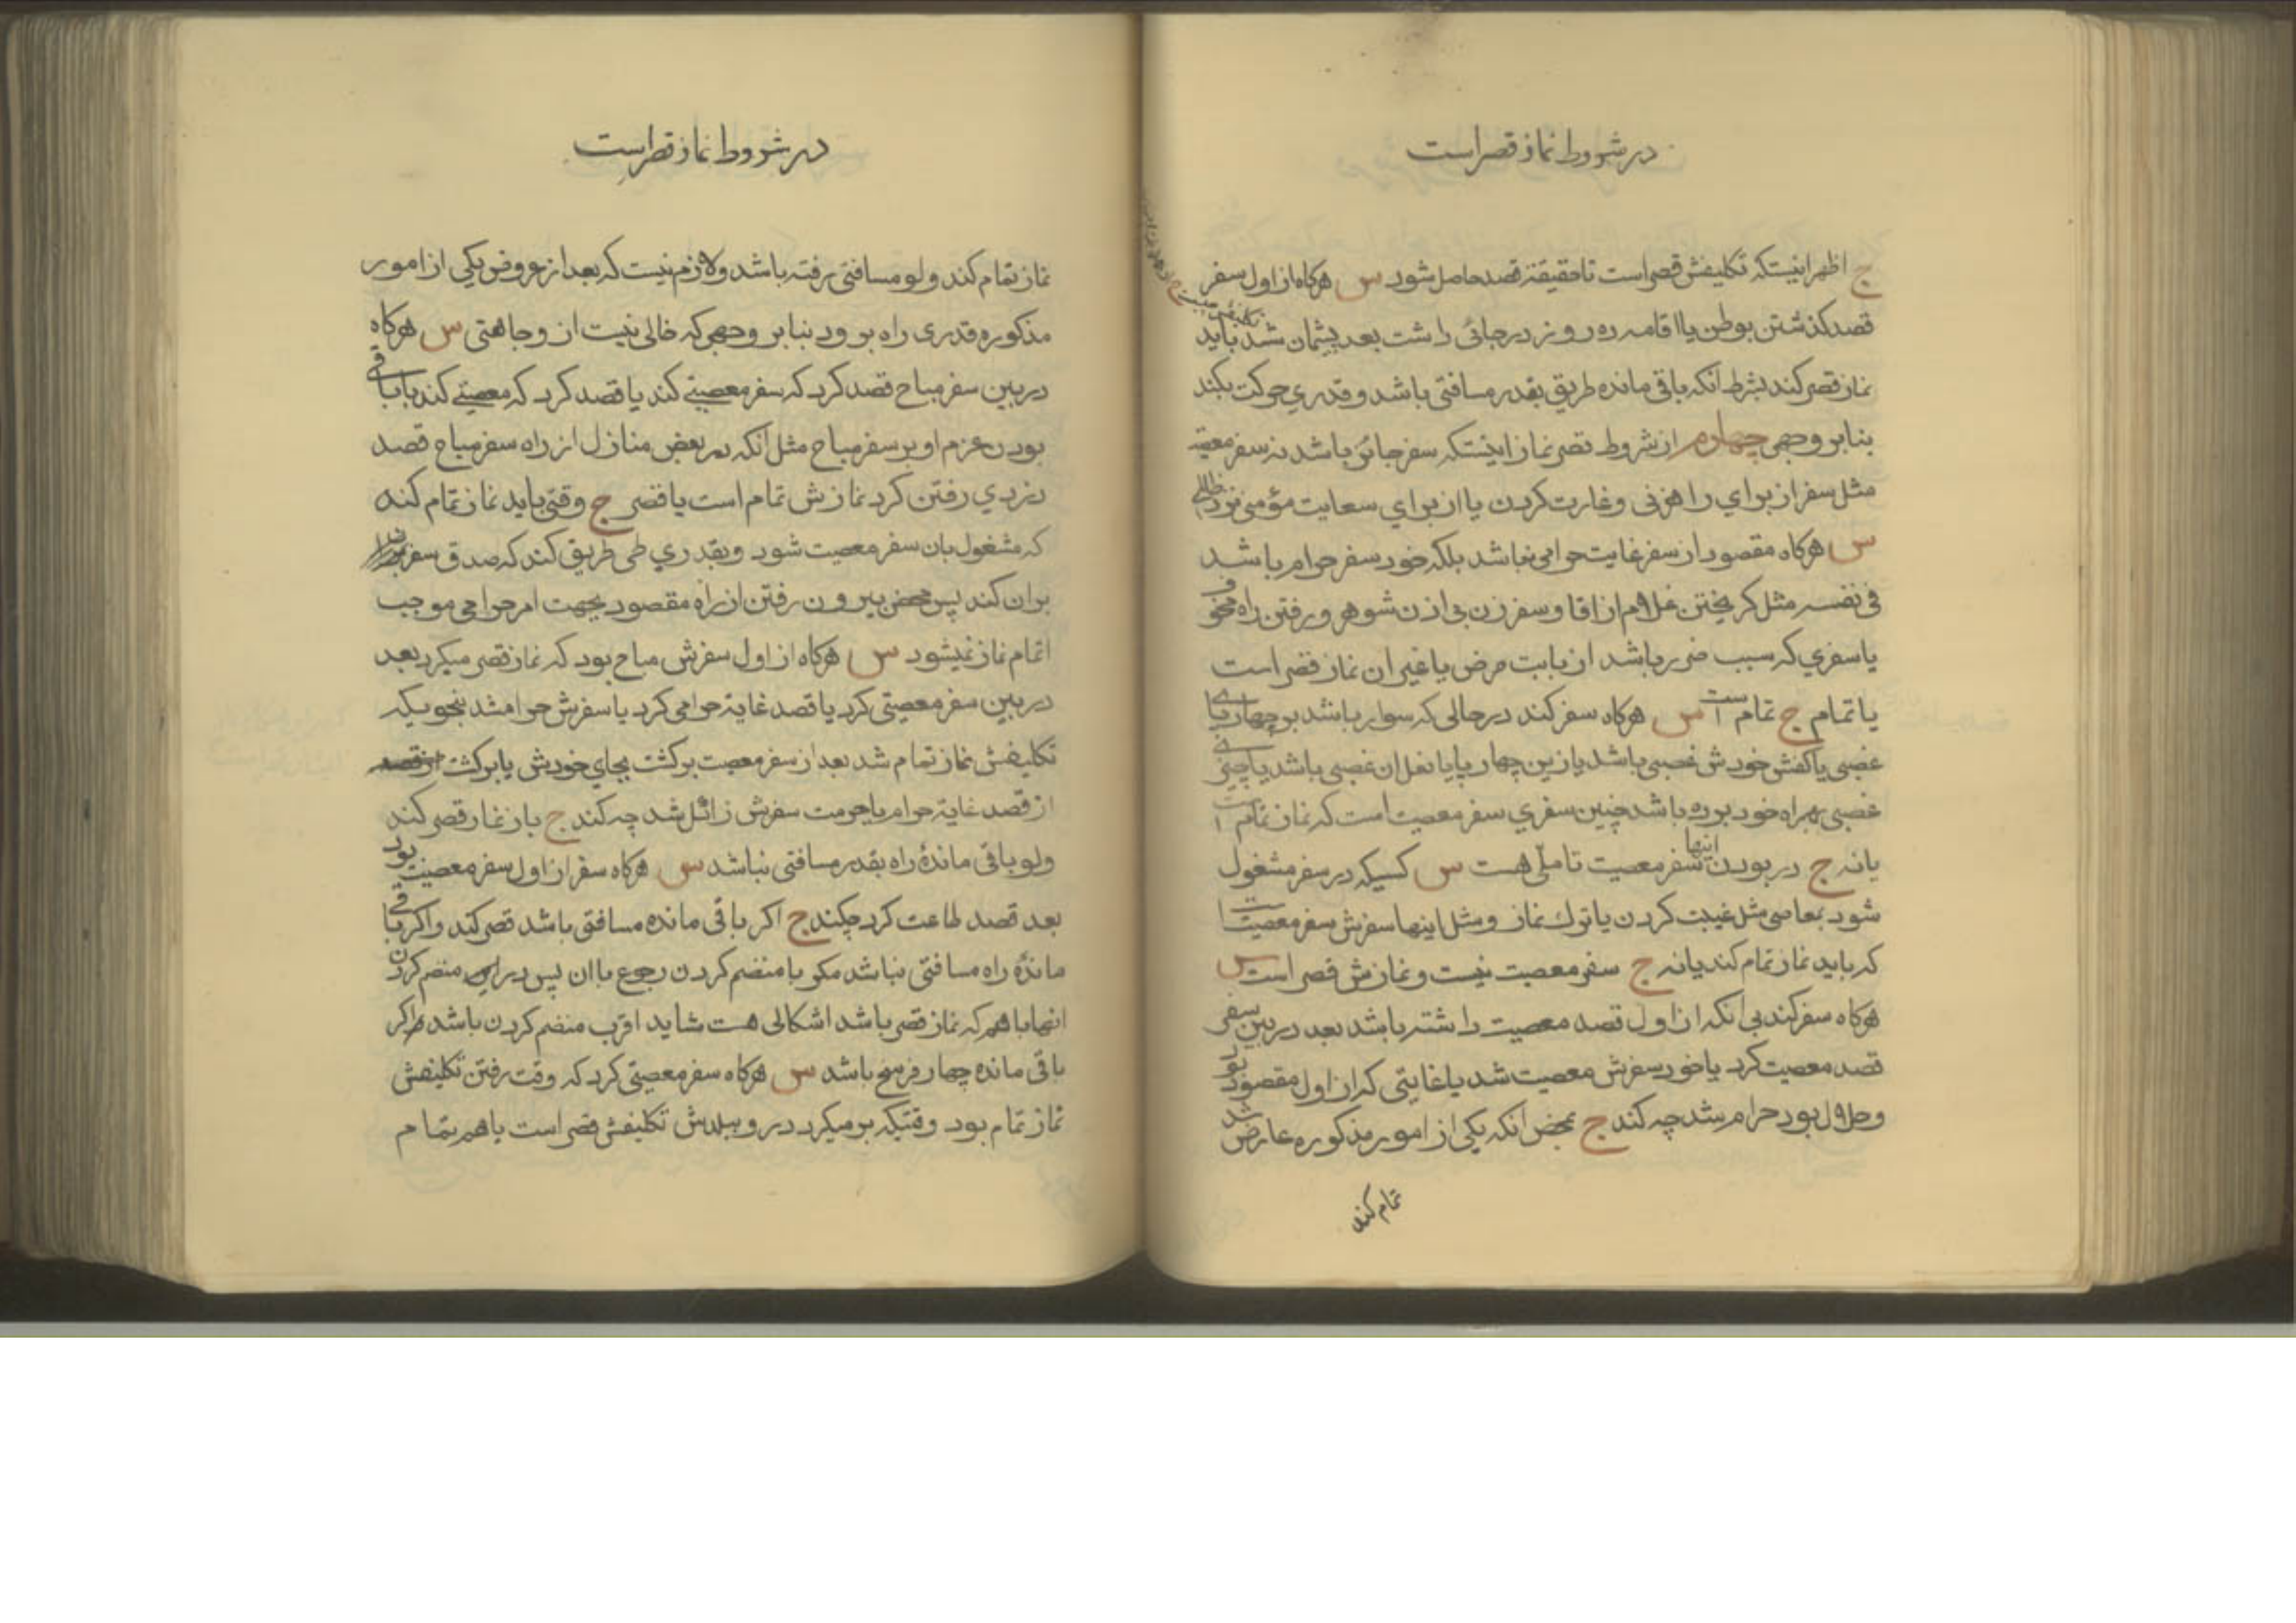 در شروط نماز قصر است
ج اظهر اینستکه تکلیفش قصر است تا حقیقة قصد حاصل شود س هرکاه از اول سفر
قصد کذشتن بوطن یا اقامه ده روز در جائی داشت بعد پشمان شد باید
نماز قصر کند بشرط آنکه باقی مانده طریق بقدر مسافتی باشد و قدری حرکت بکند
بنابر وجهی چهارم از شروط قصر نماز اینستکه سفر جائز باشد نه سفر معصیة
مثل سفر از برای راهزنی و غارت کردن یا از برای سعایت مؤمنی نزد ظالمی
س هرکاه مقصود از سفر غایت حرامی نباشد بلکه خود سفر حرام باشد
فی نفسه مثل کریختن غلام از اقا و سفر زن بی اذن شوهر و رفتن راه مخوف
یا سفری که سبب ضرر باشد از بابت مرض یا غیر ان نماز قصر است
یا تمام ج تمام است س هرکاه سفر کند در حالی که سوار باشد بر چهارپای
غصبی یا کفش خودش غصبی باشد یا زین چهارپا یا نعل ان غصبی باشد یا چیزی
غصبی بهمراه خود برده باشد چنین سفری سفر معصیت است که نماز تمام است
یا نه ج در بودن اینها سفر معصیت تاملی هست س کسیکه در سفر مشغول
شود بمعاصی مثل غیبت کردن یا ترك نماز و مثل اینها سفرش سفر معصیت است
که باید نماز تمام کند یا نه ج سفر معصیت نیست و نمازش قصر است س
هرکاه سفر کند بی آنکه از اول قصد معصیت داشته باشد بعد در بین سفر
قصد معصیت کرد یا خود سفرش معصیت شد یا غایتی که از اول مقصود بود
و حلال بود حرام شد چه کند ج بمحض آنکه یکی از امور مذکوره عارض شد
تمام کند
در شروط نماز قصر است
نماز تمام کند ولو مسافتی رفته باشد و لازم نیست که بعد از عروض یکی از امور
مذکوره قدری راه برود بنابر وجهی که خالی نیست از وجاهتی س هرکاه
در بین سفر مباح قصد کرد که سفر معصیتی کند یا قصد کرد که معصیتی کند با باقی
بودن عزم او بر سفر مباح مثل آنکه در بعض منازل از راه سفر مباح قصد
دزدی رفتن کرد نمازش تمام است یا قصر ج وقتی باید نماز تمام کند
که مشغول بان سفر معصیت شود و بقدری طی طریق کند که صدق سفر
بران کند پس محض بیرون رفتن از راه مقصود بجهت امر حرامی موجب
اتمام نماز نمیشود س هرکاه از اول سفرش مباح بود که نماز قصر میکرد بعد
در بین سفر معصیتی کرد یا قصد غایة حرامی کرد یا سفرش حرام شد بنحویکه
تکلیفش نماز تمام شد بعد از سفر معصیت برکشت بجای خودش یا برکشت
از قصد غایة حرام یا حرمت سفرش زائل شد چه کند ج باز نماز قصر کند
ولو باقی ماندۀ راه بقدر مسافتی نباشد س هرکاه سفر از اول سفر معصیت بود
بعد قصد طاعت کرد چکند ج اکر باقی مانده مسافتی باشد قصر کند و اکر باقی
ماندۀ راه مسافتی نباشد مکر با منضم کردن رجوع باان پس در منضم کردن
انها با هم که نماز قصر باشد اشکالی هست شاید اقرب منضم کردن باشد اکر
باقی مانده چهار فرسخ باشد س هرکاه سفر معصیتی کرد که وقت رفتن تکلیفش
نماز تمام بود وقتیکه بر میکردد رو ببلدش تکلیفش قصر است یا هم تمام